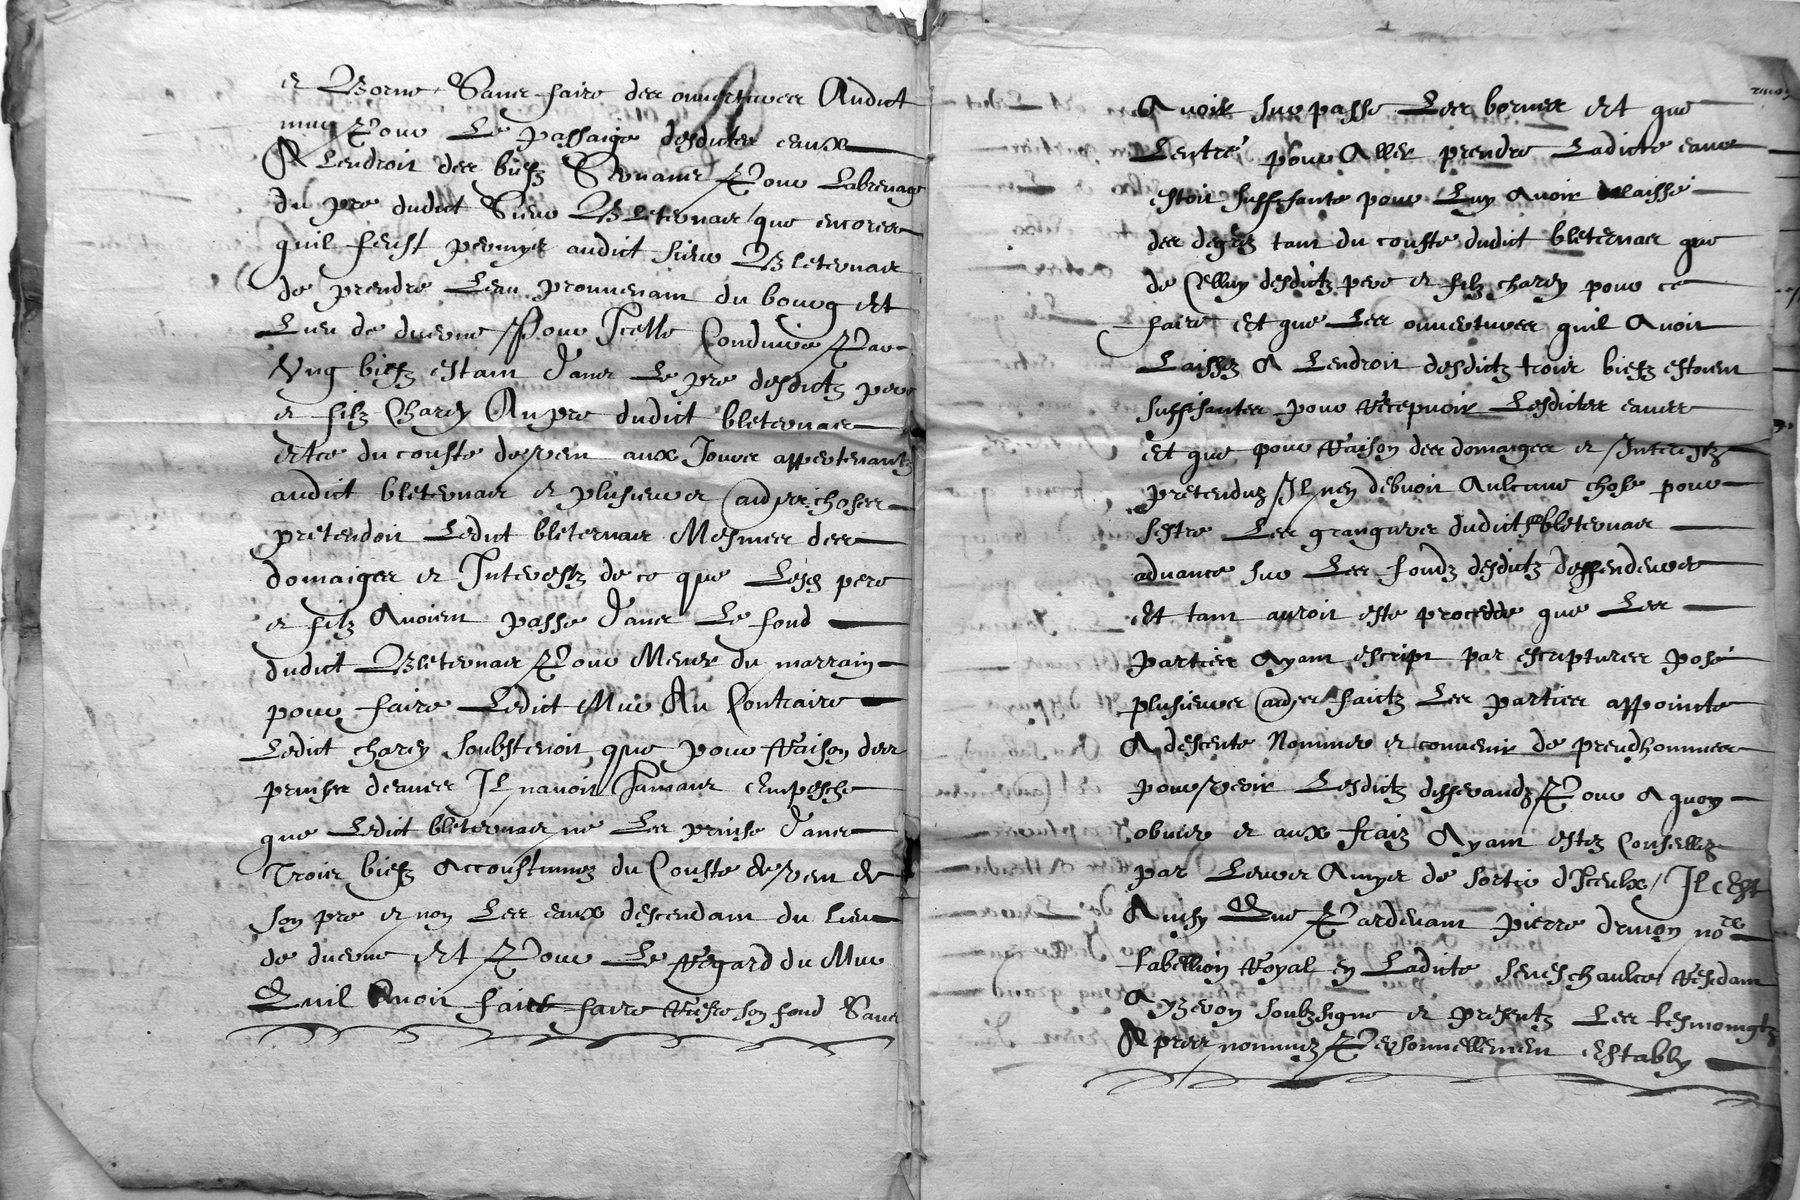 et Borne Sans faire des ouvertures Audict
mur Pour Le passaige desdictes eaux
A Lendroit des biefz Servans Pour Labrevage
du pre dudict Sieur Bleternais que encores
quil feust permys audict sieur Bleternais
de prendre Leau prouvenant du bourg Et
Lieu de duerne Pour Icelle Conduire Par
Ung biefz estant dans Le pre desdictz pere
et filz Charey Au pre dudict bleternais
Et ce du couste de vent aux Jours appertenantz
audict bleternais et plusieurs aultres choses
pretendoit Ledict bleternais Mesmes des
domaiges et Interestz de ce que Lesd pere
et filz Avoient passe dans Le fond
dudict Bleternais Pour Mener du marrain
pour faire Ledict Mur Au Contraire
Ledict charey soubstenoit que pour Raison des
prinses deaues Il navoit Jamais empesche
que Ledict bleternais ne Les prinse dans
Trois biefz accoustumez du Couste de vent de
son pre et non Les eaux descendant du lieu
de duerne Et Pour Le Regard du Mur
Quil Avoit faict faire Riere son fond Sans
Avoir surpasse Les bornes Et que
Lentre pour Aller prendre Ladicte eaue
estoit suffisante pour Luy Avoir delaisse
des degrez tant du couste dudict bleternais que
de Celluy desdictz pere et filz charey pour ce
faire Et que Les ouvertures quil Avoit
Laissez A Lendroit desdictz trois biefz estoient
suffisantes pour Recepvoir Lesdictes eaues
Et que pour Raison des domaiges et Interestz
pretenduz Il ney debvoit Aulcune chose pour
sestre Les grangiers dudict bleternais
advance sur Les fondz desdictz deffendeurs
Et tant auroit este procedde que Les
parties Ayant escript par escriptures pose
plusieurs aultres faictz Les parties appoincte
A descente Nommer et convenir de preudhommes
pour veoir Lesdictz differandz Pour A quoy
obvier et aux fraiz Ayant estez Conseillez
par Leurs Amys de sortir diceulx Il Est
Ainsy Que Pardevant pierre no.re
tabellion Royal en Ladicte seneschaulcee Residant
A yzeron soubzsigne et presentz Les tesmoingtz
Apres nommez Personnellement estably